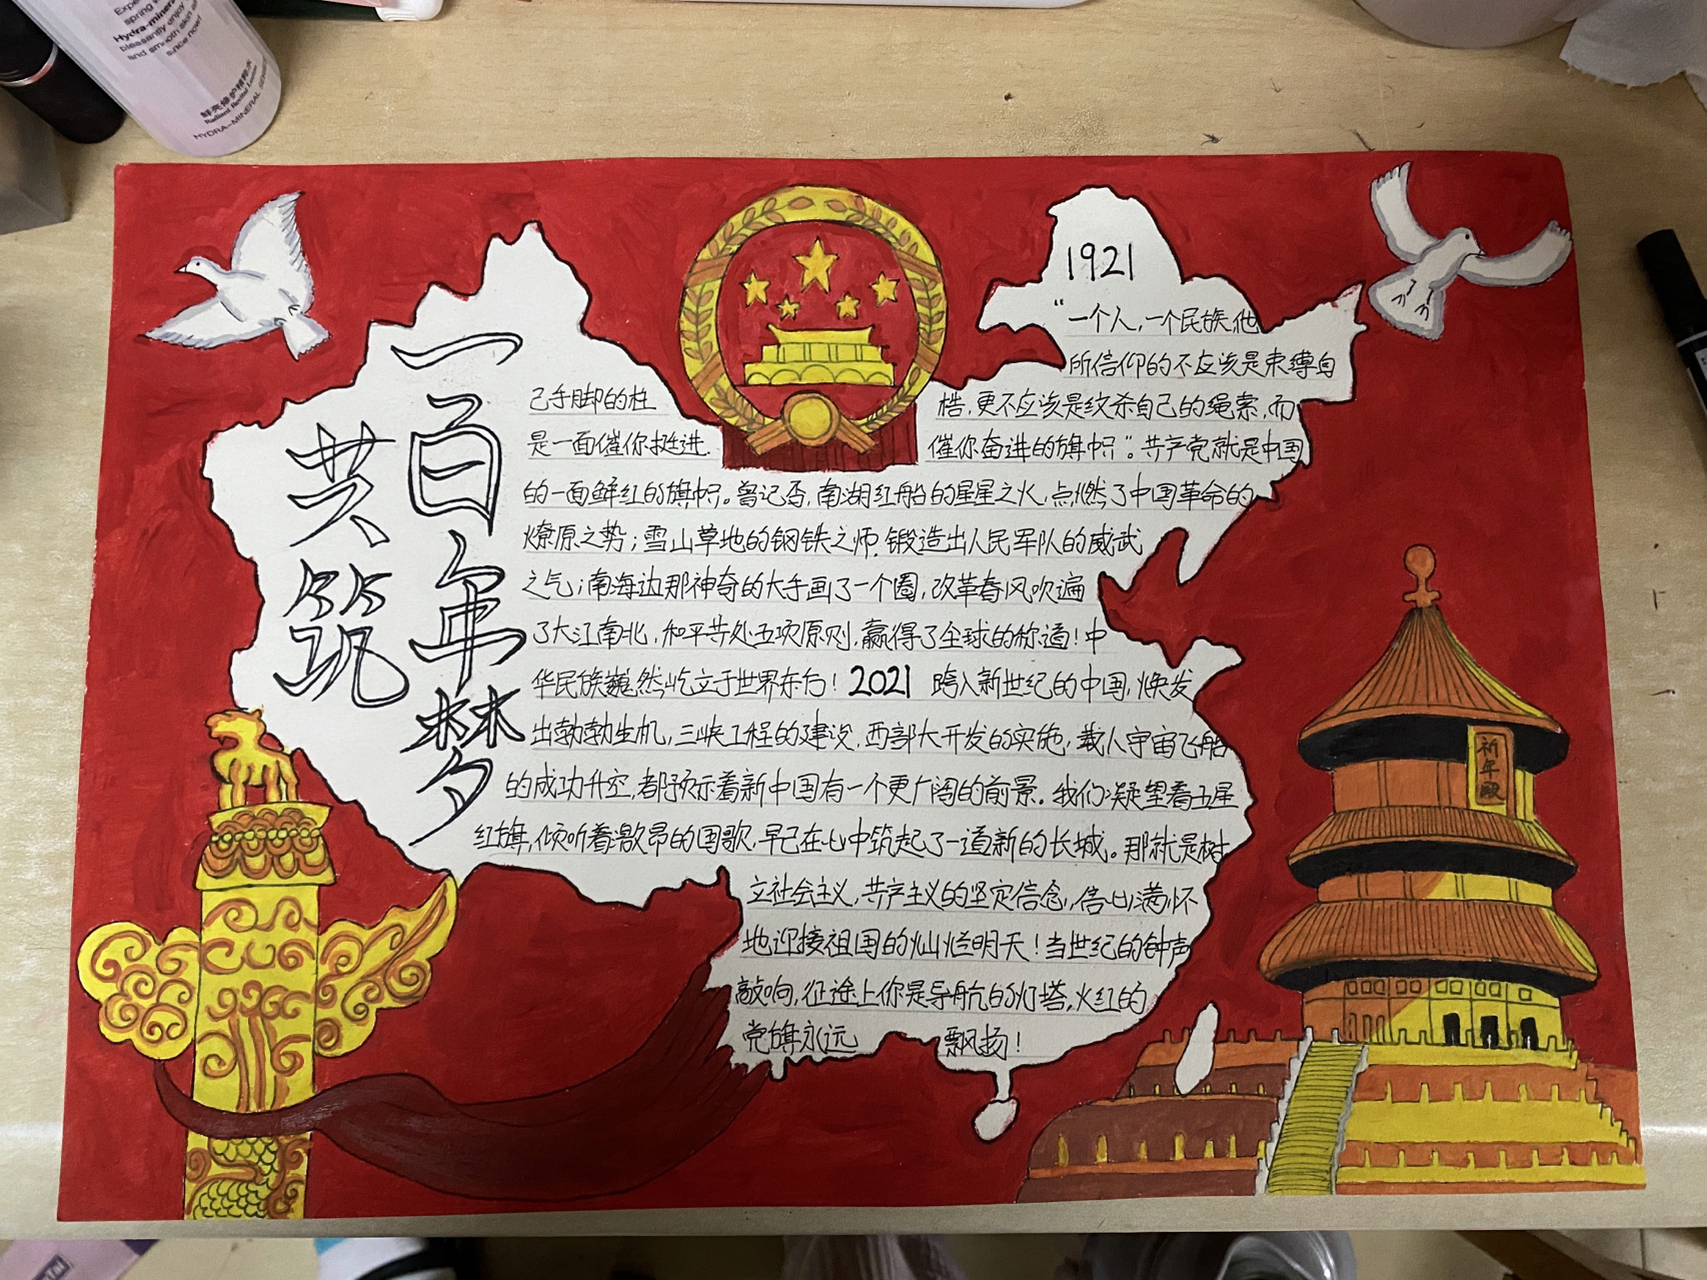 Expe
spring
Hydra-minera
pleasantly enjoy
and smooth skin
since now!
鲜亮修护精粹水
Radiant Revital Lotion
HYDRA-MINERAL
一百年梦
共筑
1921
“一个人,一个民族,他
所信仰的不应该是束缚自
己手脚的桎
梏,更不应该是绞杀自己的绳索,而
是一面催你挺进.
催你奋进的旗帜”。共产党就是中国
的一面鲜红的旗帜。曾记否,南湖红船的星星之火,点燃了中国革命的
燎原之势;雪山草地的钢铁之师,锻造出人民军队的威武
之气;南海边那神奇的大手画了一个圈,改革春风吹遍
了大江南北,和平共处五项原则,赢得了全球的称道!中
华民族巍然屹立于世界东方!2021 跨入新世纪的中国,焕发
出勃勃生机,三峡工程的建设,西部大开发的实施,载人宇宙飞船
的成功升空,都预示着新中国有一个更广阔的前景。我们凝望着五星
红旗,倾听着激昂的国歌,早已在心中筑起了一道新的长城。那就是树
立社会主义,共产主义的坚定信念,信心满怀
地迎接祖国的灿烂明天!当世纪的钟声
敲响,征途上你是导航的灯塔,火红的
党旗永远 飘扬!
祈年殿